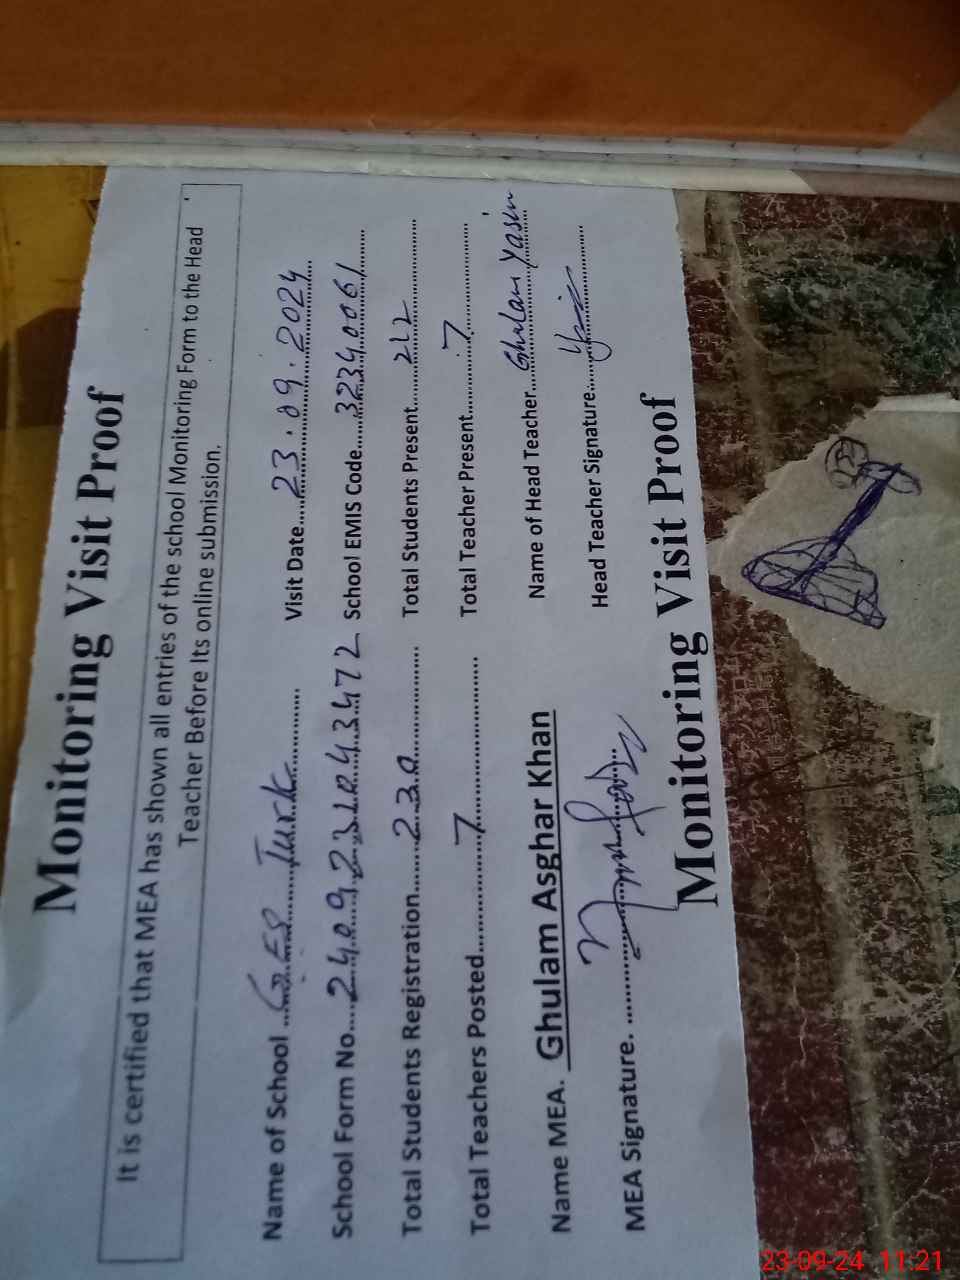 Monitoring Visit Proof
It is certified that MEA has shown all entries of the school Monitoring Form to the Head
Teacher Before Its online submission.
Name of School ......GES Turk........ Visit Date....23.09.2024
School Form No....2409231043472 School EMIS Code....32340061
Total Students Registration.....230........ Total Students Present....212........
Total Teachers Posted........7........ Total Teacher Present........7........
Name MEA. Ghulam Asghar Khan Name of Head Teacher....Ghulam Yasin
MEA Signature. ........ Head Teacher Signature........
Monitoring Visit Proof
23-09-24 11:21